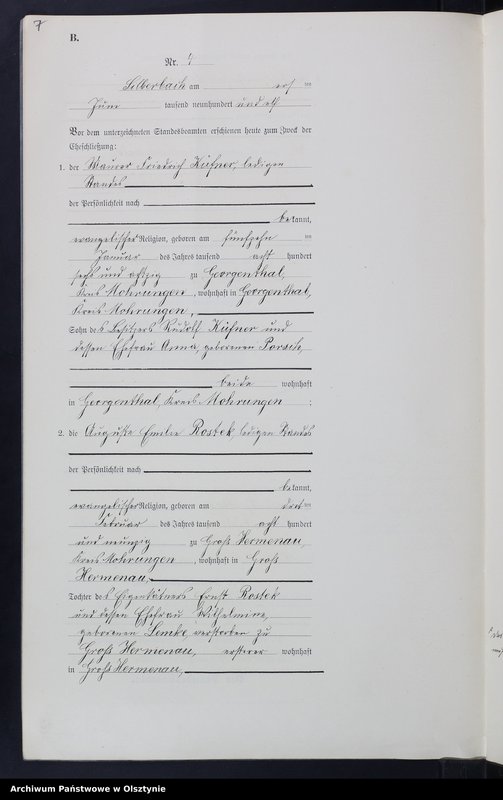 7
B.
Nr. 7
Silberbach am ersten
Juni tausend neunhundert und elf
Vor dem unterzeichneten Standesbeamten erschienen heute zum Zweck der
Eheschließung:
1. der Maurer Friedrich Küfner, ledigen
Standes
der Persönlichkeit nach
bekannt,
evangelischer Religion, geboren am fünfzehnten
Januar des Jahres tausend acht hundert
sechs und achtzig zu Georgenthal,
Kreis Mohrungen, wohnhaft in Georgenthal,
Kreis Mohrungen,
Sohn des Besitzers Rudolf Küfner und
dessen Ehefrau Anna, geborenen Porsch,
beide wohnhaft
in Georgenthal, Kreis Mohrungen ;
2. die Auguste Emilie Rostek, ledigen Standes
der Persönlichkeit nach
bekannt,
evangelischer Religion, geboren am dritten
Februar des Jahres tausend acht hundert
und neunzig zu Groß Hermenau,
Kreis Mohrungen, wohnhaft in Groß
Hermenau,
Tochter des Eigenkätners Ernst Rostek
und dessen Ehefrau Wilhelmine,
geborenen Lemke verstorben zu
Groß Hermenau, ersterer wohnhaft
in Groß Hermenau,
Archiwum Państwowe w Olsztynie